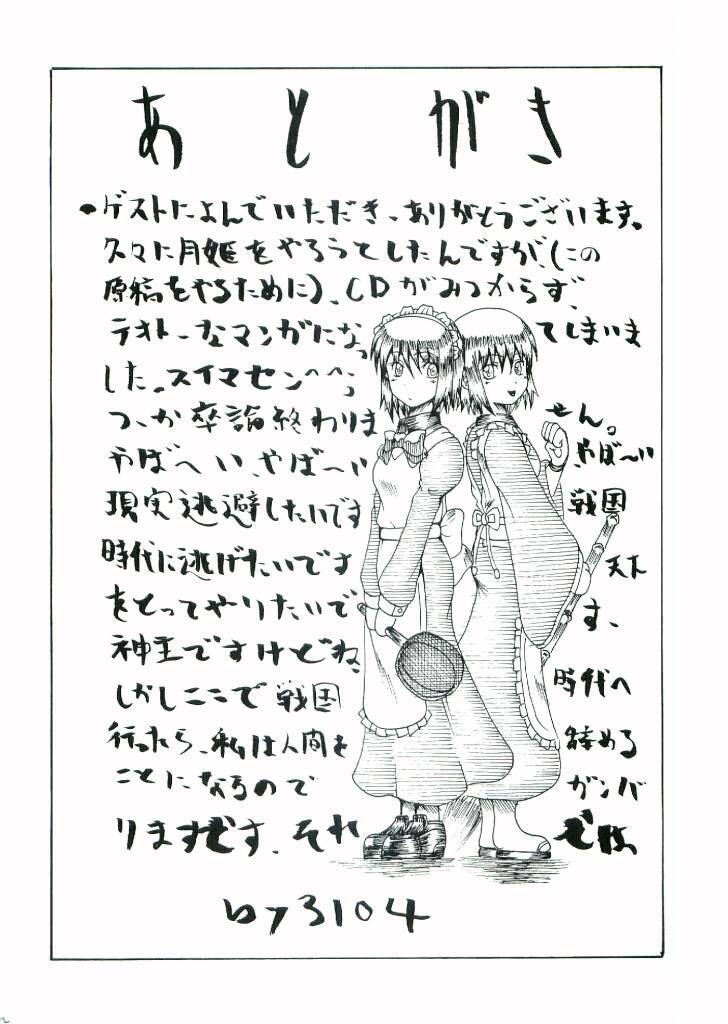 あとがき
・ゲストによんでいただき、ありがとうございます。
久々に月姫をやろうてしたんですが、(この
原稿をやるために)、CDがみつからず、
テキトーなマンガになってしまいま
した。スイマセン^^;
つーか卒論終わりません。
やばへい、やば〜いやば〜い
現実逃避したいです戦国
時代に逃げたいです天下
をとってやりたいです、
神主ですけどね、
しかしここで戦国時代へ
行ったら、私は人間を辞める
ことになるのでガンバ
りますです、それでは
by 3104